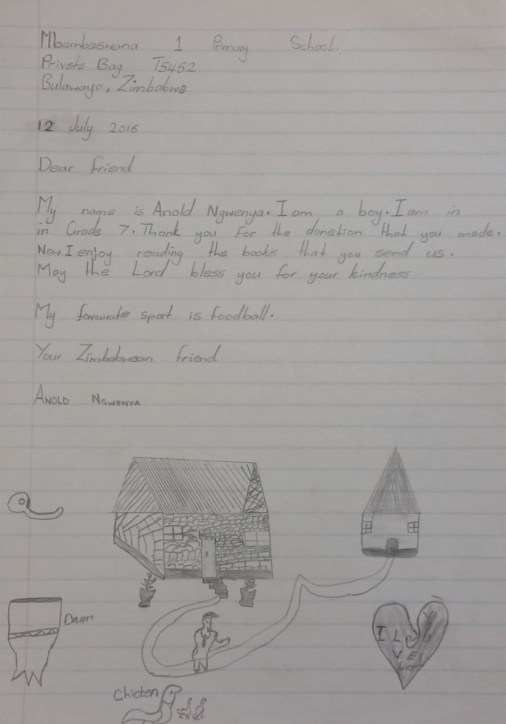 Mbambasnona 1 Primary School.
Private Bag T5452
Bulawayo, Zimbabwe
12 July 2016
Dear friend
My name is Anold Ngwenya. I am a boy. I am in
in Grade 7. Thank you for the donation that you made.
Now I enjoy reading the books that you send us.
May the Lord bless you for your kindness.
My favourate sport is foodball.
Your Zimbabwean friend
ANOLD NGWENYA
Drum
Chicken
I LO
VE